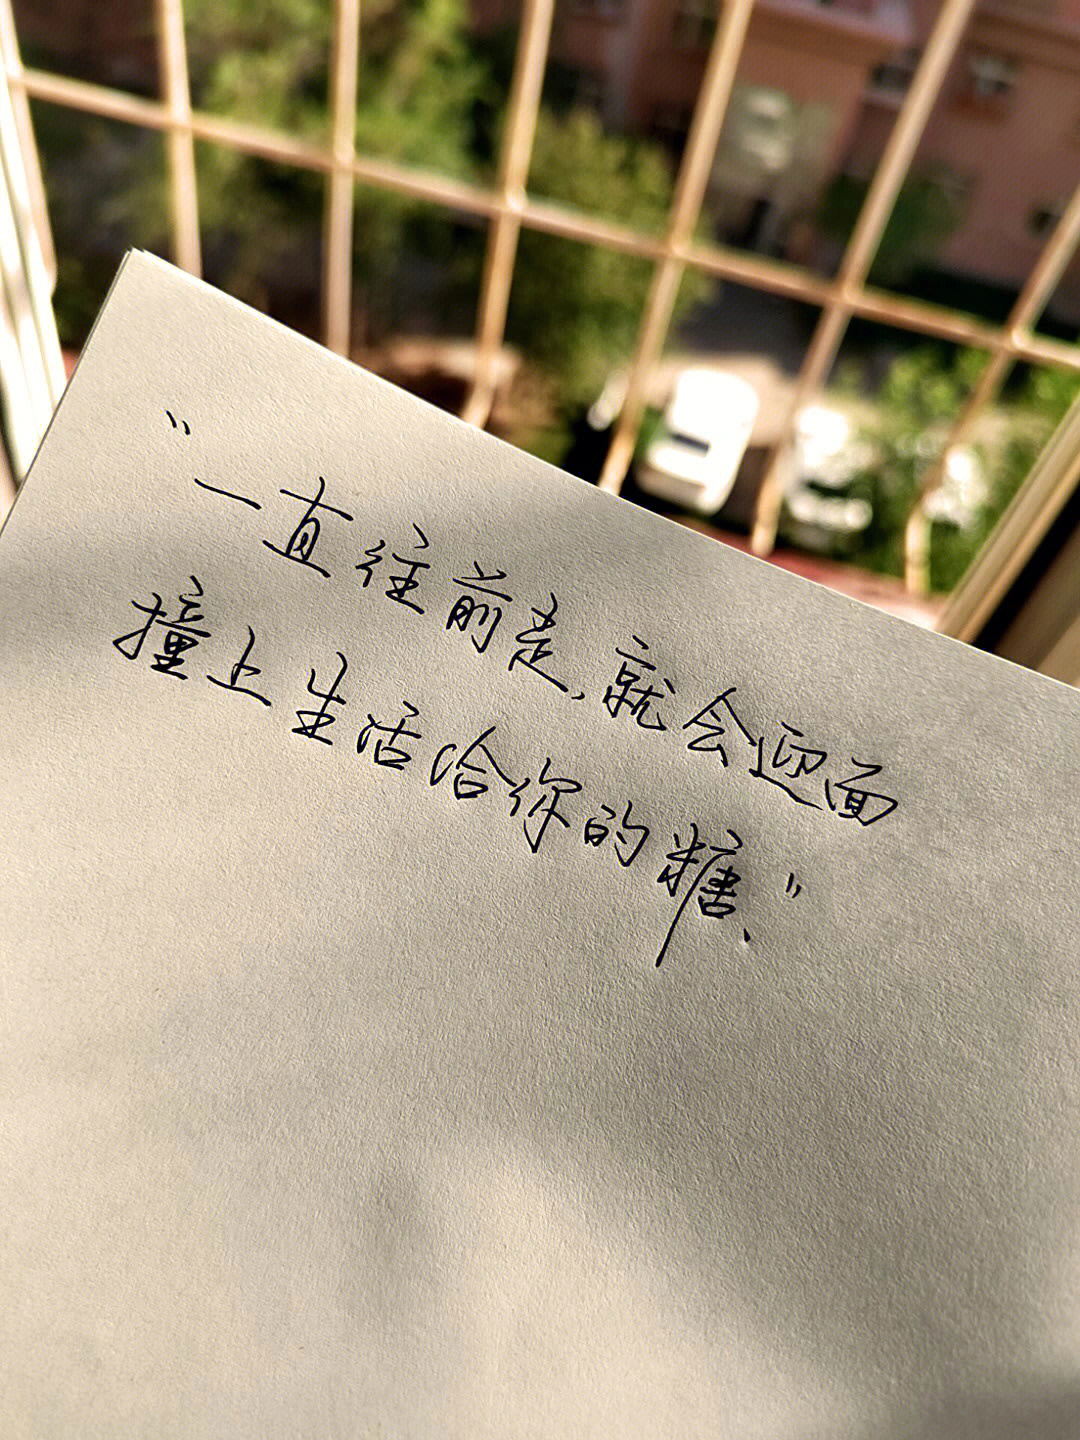 "一直往前走,就会迎面
撞上生活给你的糖."